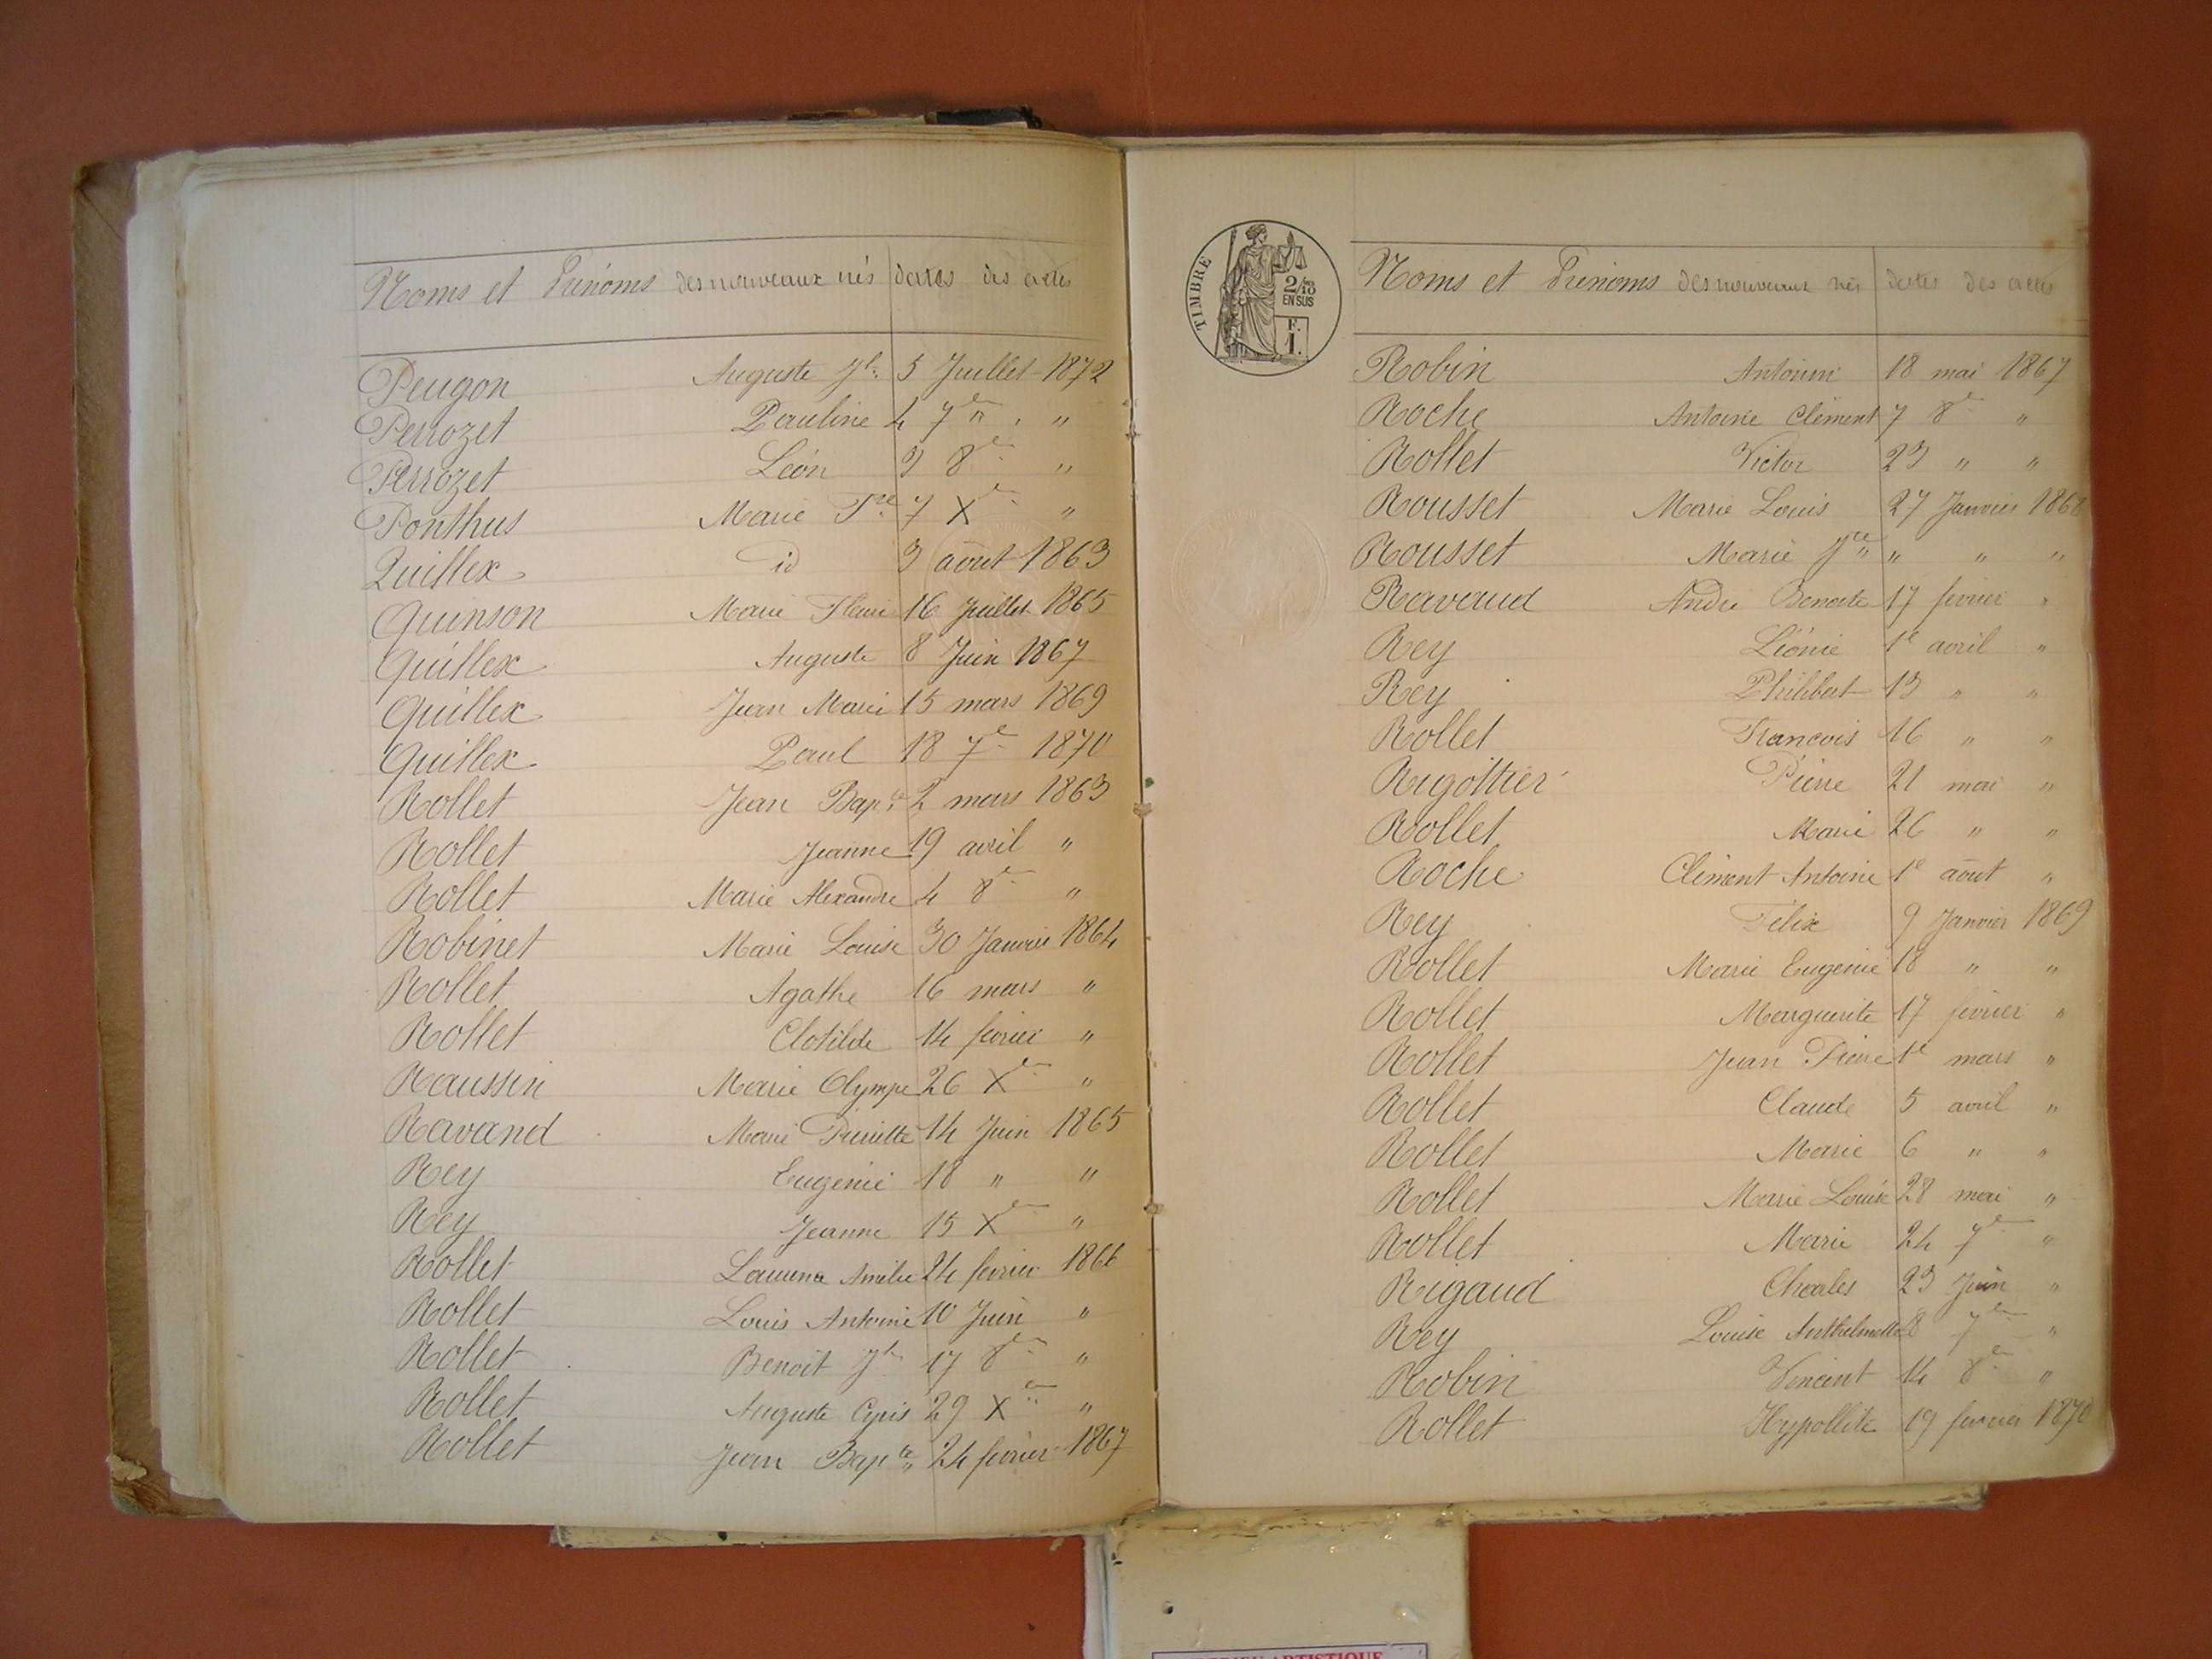 Noms et Prénoms des nouveaux nés dates des actes
Peugon Auguste Jh 5 Juillet 1872
Perrozet Pauline 4 7e " "
Perrozet Léon 3 8e "
Ponthus Marie Fse 7 Xe "
Quillex id 3 août 1863
Quinson Marie Fleurie 16 Juillet 1865
Quillex Auguste 8 Juin 1867
Quillex Jean Marie 15 mars 1869
Quillex Paul 18 7e 1870
Rollet Jean Bapte 2 mars 1863
Rollet Jeanne 19 avril "
Rollet Marie Alexandre 4 8e "
Robinet Marie Louise 30 Janvier 1864
Rollet Agathe 16 mars "
Rollet Clotilde 14 février "
Raussin Marie Olympe 26 Xe "
Ravand Marie Pierrette 14 Juin 1865
Rey Eugénie 18 " "
Rey Jeanne 15 Xe "
Rollet Amélie 24 février 1866
Rollet Louis Antoine 10 Juin "
Rollet Benoit Jh 17 8e "
Rollet Auguste 29 Xe "
Rollet Jean Bapte 24 février 1867
TIMBRE
2/10
EN SUS
F.
1.
Noms et Prénoms des nouveaux nés dates des actes
Robin Antonin 18 mai 1867
Roche Antoine Clément 7 8e "
Rollet Victor 23 " "
Rousset Marie Louis 27 Janvier 1868
Rousset Marie Jne " " "
Ravaud André Benoite 17 février "
Rey Léonie 1e avril "
Rey Philibert 13 " "
Rollet Francois 16 " "
Rigottier Pierre 21 mai "
Rollet Marie 26 " "
Roche Clément Antoine 1e août "
Rey Félix 9 Janvier 1869
Rollet Marie Eugénie 18 " "
Rollet Marguerite 17 février "
Rollet Jean Pierre 1e mars "
Rollet Claude 5 avril "
Rollet Marie 6 " "
Rollet Marie Louise 28 mai "
Rollet Marie 24 7e "
Rigaud Charles 23 Juin "
Rey Louise Anthelmette 8 7e "
Robin Vincent 14 8e "
Rollet Hypollite 19 février 1870